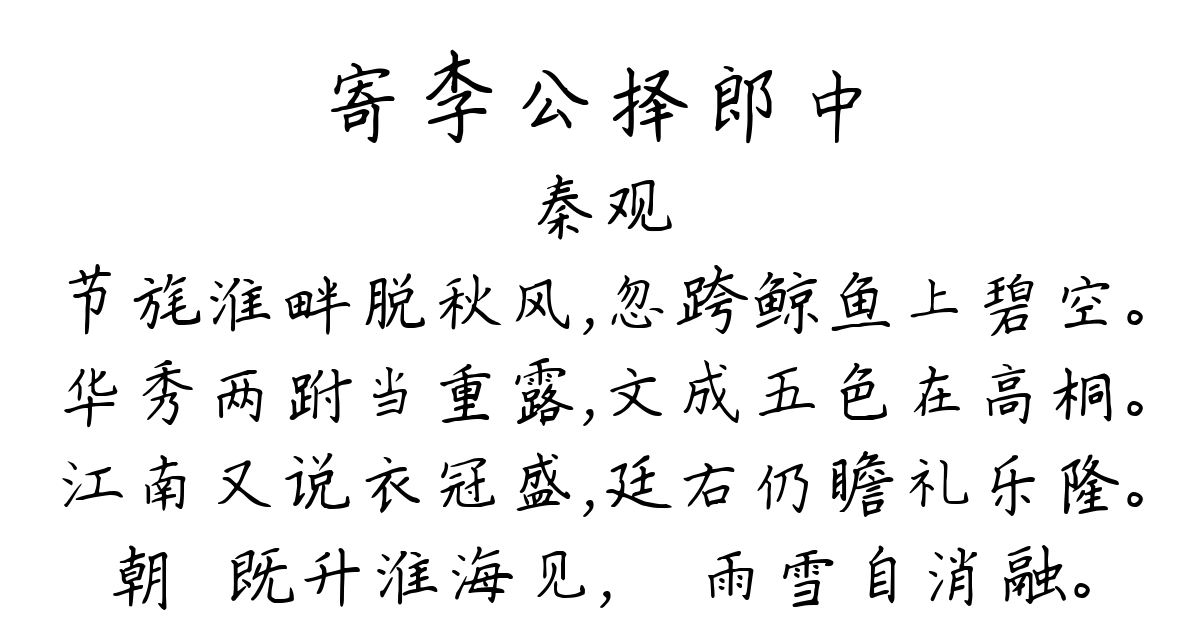 寄李公择郎中
秦观
节旄淮畔脱秋风,忽跨鲸鱼上碧空。
华秀两跗当重露,文成五色在高桐。
江南又说衣冠盛,廷右仍瞻礼乐隆。
朝 既升淮海见, 雨雪自消融。